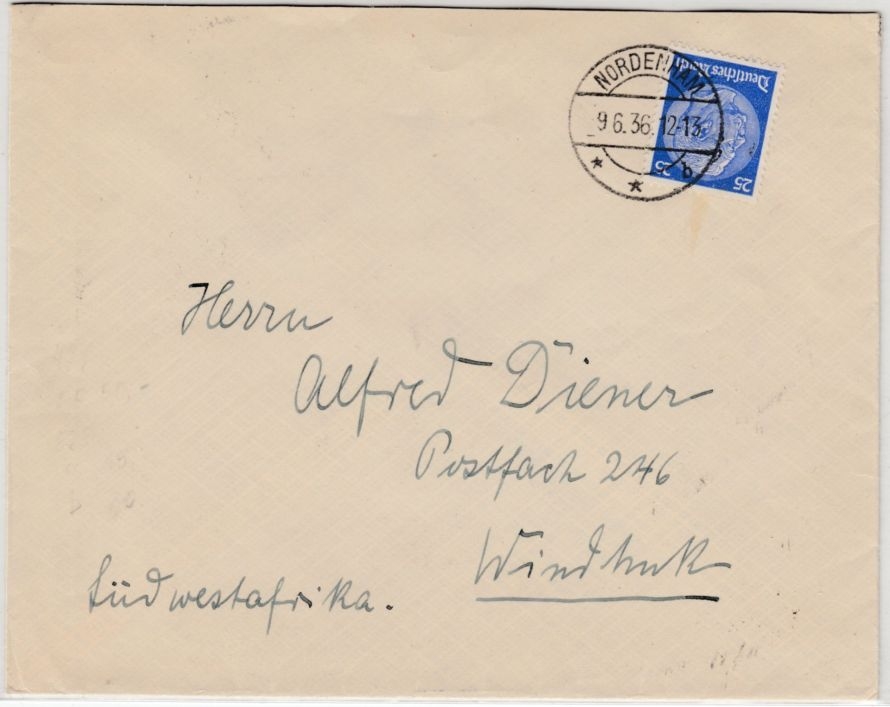 NORDENHAM
9 6.36. 12-13
* * b
Deutsches Reich
25 25
Herrn
Alfred Diener
Postfach 246
Windhuk
Südwestafrika.